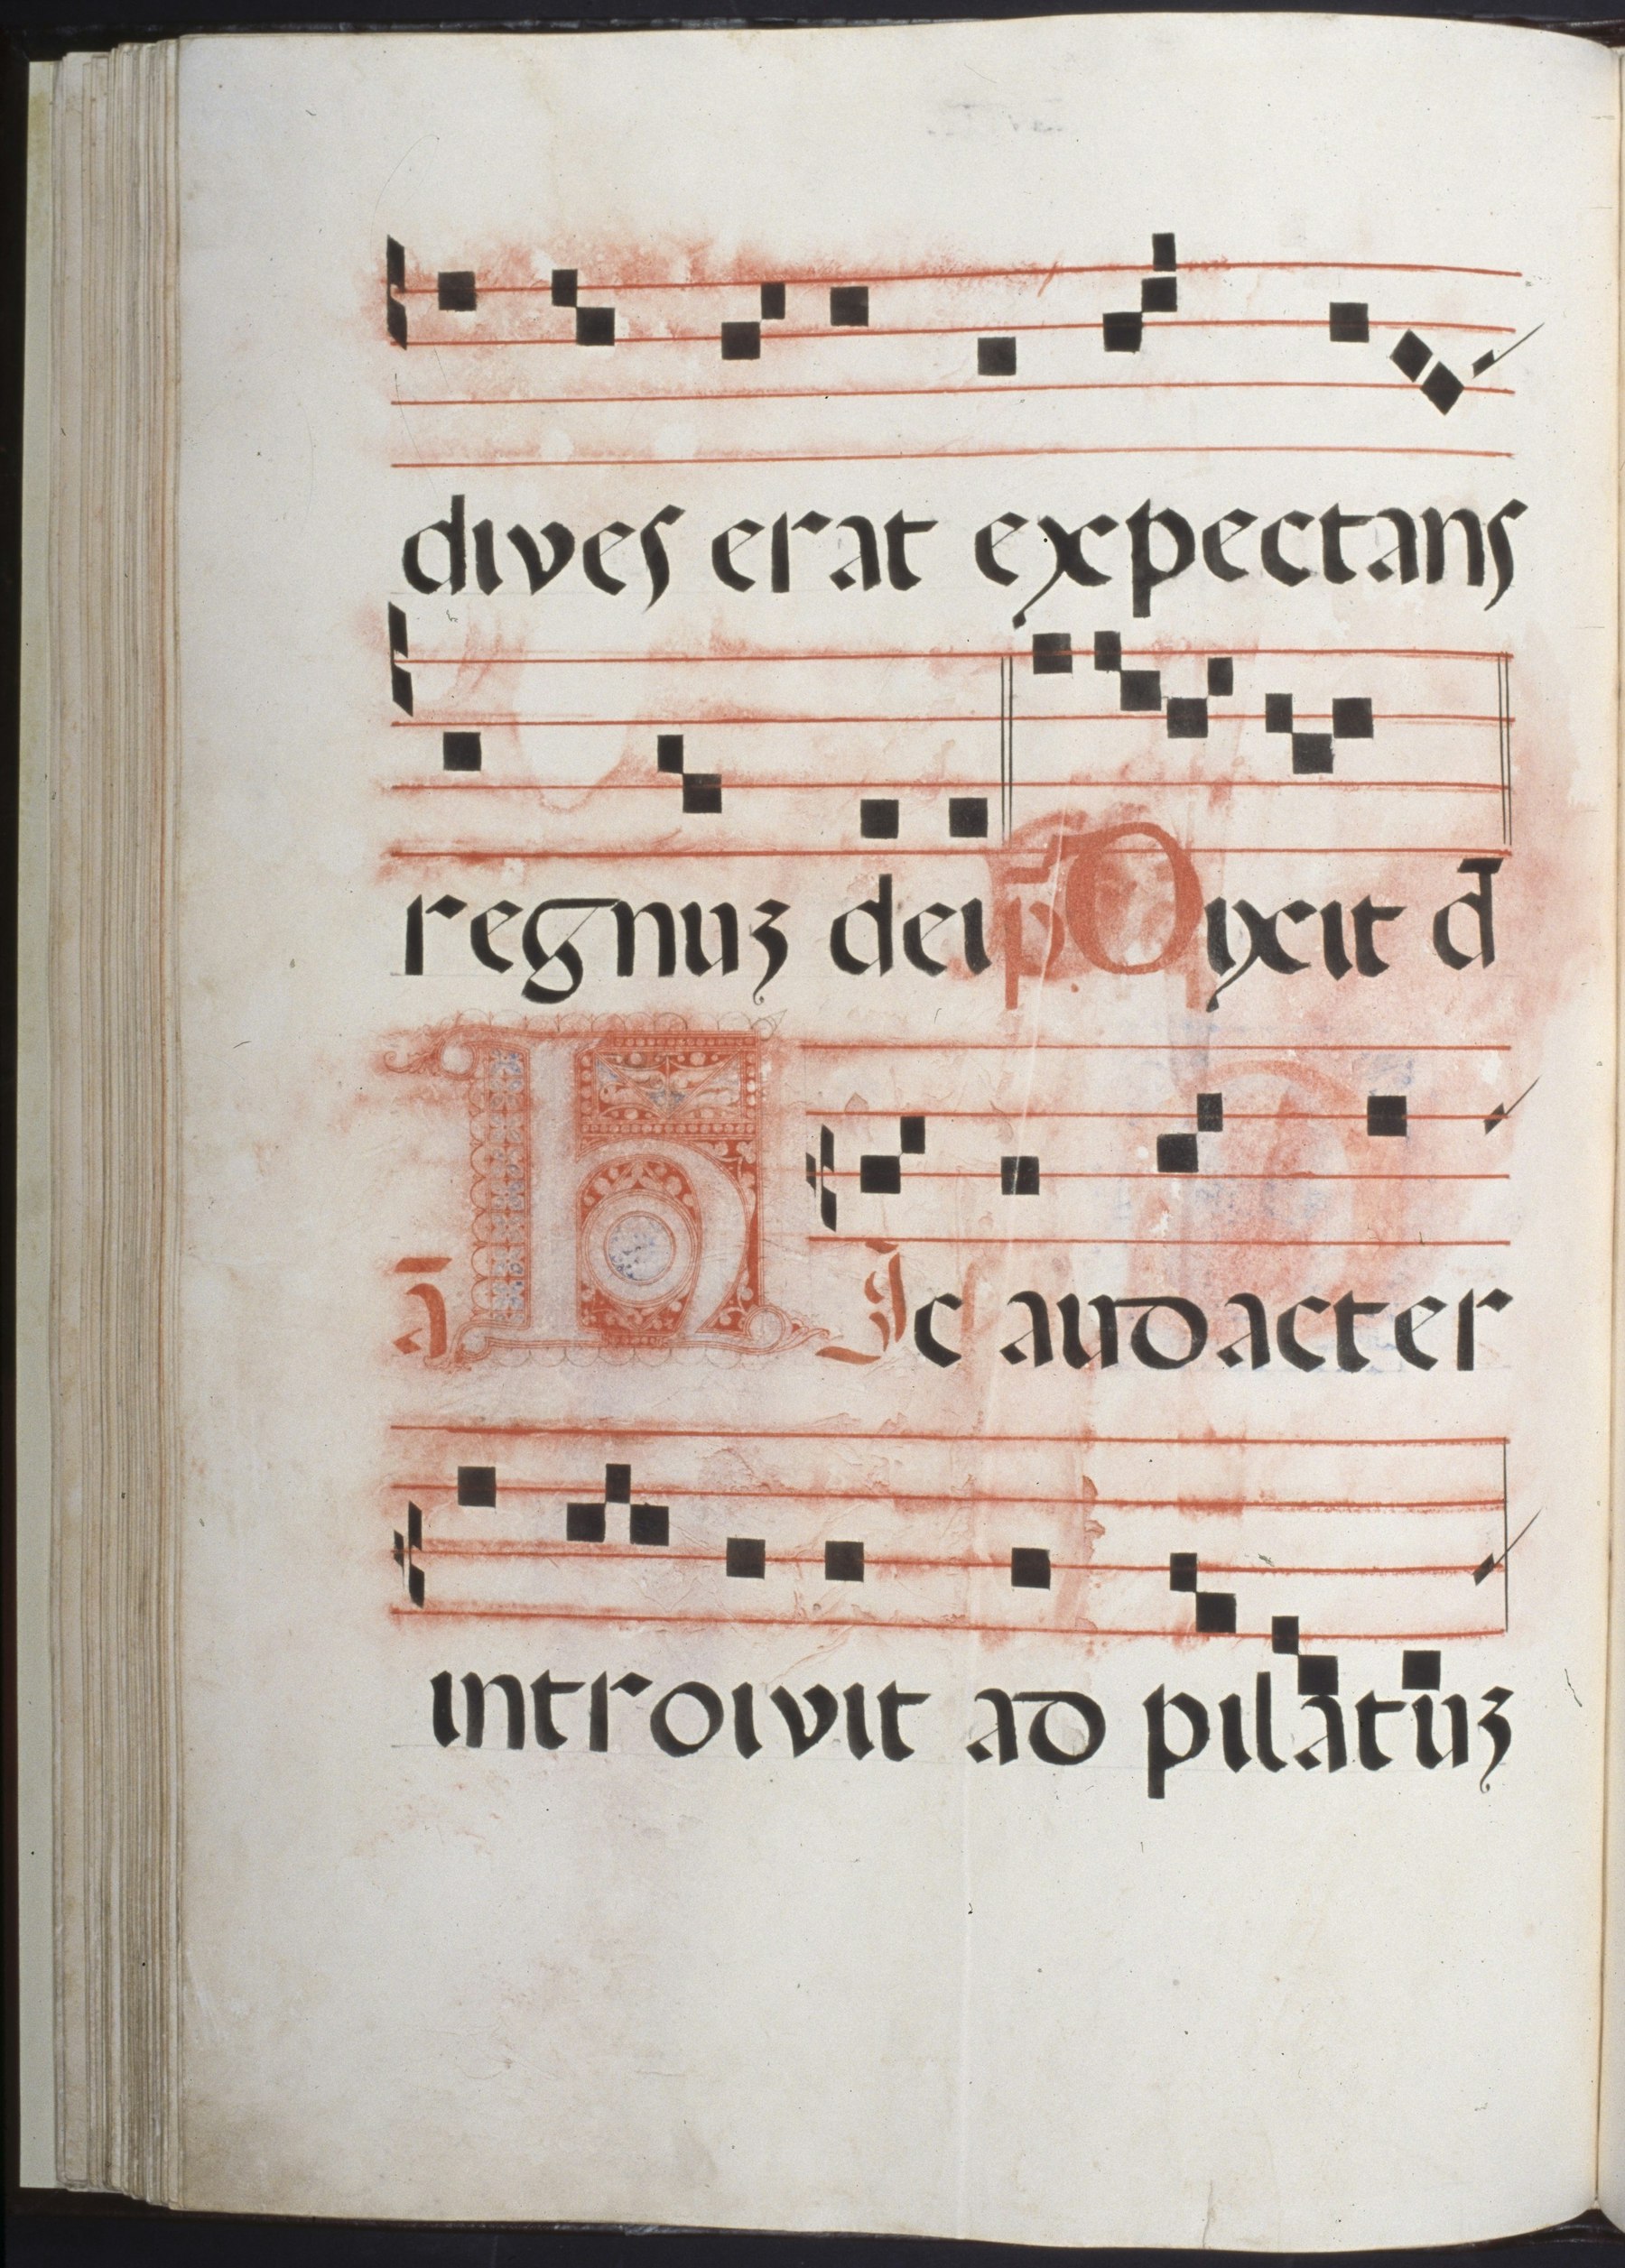 dives erat expectans
regnuʒ dei p̄ Dixit d̄
ā Hic audacter
introivit ad pilatūʒ